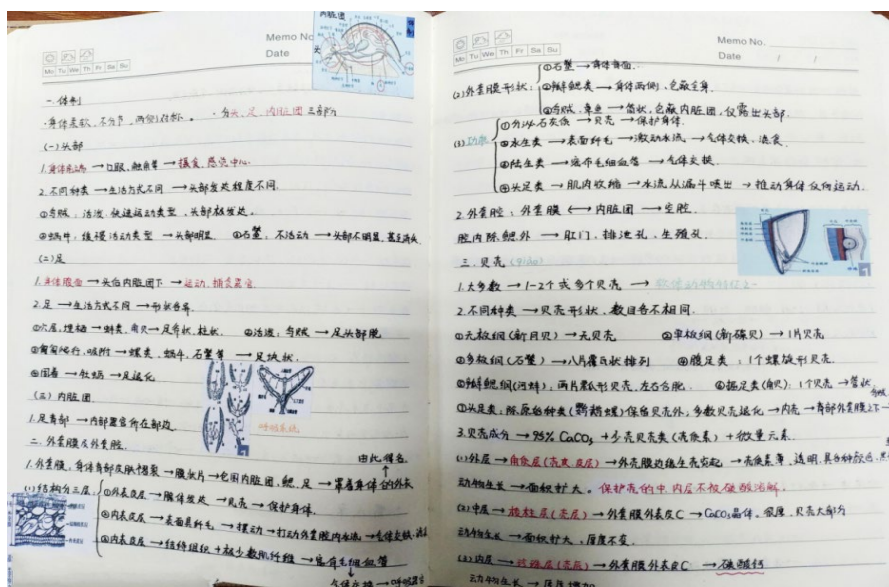 内脏团
头
Memo No.
Date
Mo Tu We Th Fr Sa Su
一.体制
·身体柔软、不分节、两侧对称. ·分头、足、内脏团三部分
(一)头部
1.身体前端→口、眼、触角等→摄食、感觉中心.
2.不同种类→生活方式不同→头部发达程度不同.
①乌贼:活泼、快速运动类型、头部极发达.
②蜗牛:缓慢活动类型→头部明显. ③石鳖:不活动→头部不明显、甚至消失
(二)足
1.身体腹面→头后内脏团下→运动、捕食器官.
2.足→生活方式不同→形状各异.
①穴居、埋栖→蚌类、角贝→足斧状、柱状. ②活泼:乌贼→足头部腕
③匍匐爬行、吸附→螺类、蜗牛、石鳖等→足块状.
④固着→牡蛎→足退化
(三)内脏团.
1.足背部→内部器官所在部位.
呼吸系统
二.外套膜及外套腔.
由此得名
1.外套膜:身体背部皮肤褶裂→膜状片→包围内脏团、鳃、足→罩着身体的外衣
(1)结构分三层:
①外表皮层→腺体发达→贝壳→保护身体.
②内表皮层→表面具纤毛→摆动→打动外套腔内水流→气体交换、
③内表皮层→结缔组织+极少数肌纤维→富有毛细血管
气体交换→呼吸器官
Memo No.
Mo Tu We Th Fr Sa Su
Date / /
(2)外套膜形状:
①石鳖→身体背面.
②瓣鳃类→身体两侧、包蔽全身.
③乌贼、章鱼→筒状,包蔽内脏团,仅露出头部.
(3)功能
①分泌石灰质→贝壳→保护身体.
②水生类→表面纤毛→激动水流→气体交换、滤食.
③陆生类→密布毛细血管→气体交换.
④头足类→肌肉收缩→水流从漏斗喷出→推动身体反向运动.
2.外套腔:外套膜←→内脏团→空腔.
腔内除鳃外→肛门、排泄孔、生殖孔.
三.贝壳(qiào)
1.大多数→1-2个或多个贝壳→软体动物特征之一
2.不同种类→贝壳形状、数目各不相同.
①无板纲(新月贝)→无贝壳 ②单板纲(新碟贝)→1片贝壳
③多板纲(石鳖)→八片覆瓦状排列 ④腹足类:1个螺旋形贝壳.
⑤瓣鳃纲(河蚌):两片瓢形贝壳、左右合抱. ⑥掘足类(角贝):1个贝壳→管状
⑦头足类:除原始种类(鹦鹉螺)保留贝壳外,多数贝壳退化→内壳→背部外套膜之下
3.贝壳成分→95% CaCO₃+少壳贝壳类(壳质素)+微量元素.
(1)外层→角质层(壳皮、皮层)→外壳膜边缘生壳突起→壳质素薄、透明、具各种颜色、
动物生长→面积扩大. 保护壳的中、内层不被碳酸溶解.
(2)中层→棱柱层(壳层)→外套膜外表皮C→CaCO₃晶体、很厚、贝壳大部分
动物生长→面积扩大、厚度不变.
(3)内层→珍珠层(壳底)→外套膜外表皮C→碳酸钙
动物生长→厚度增加